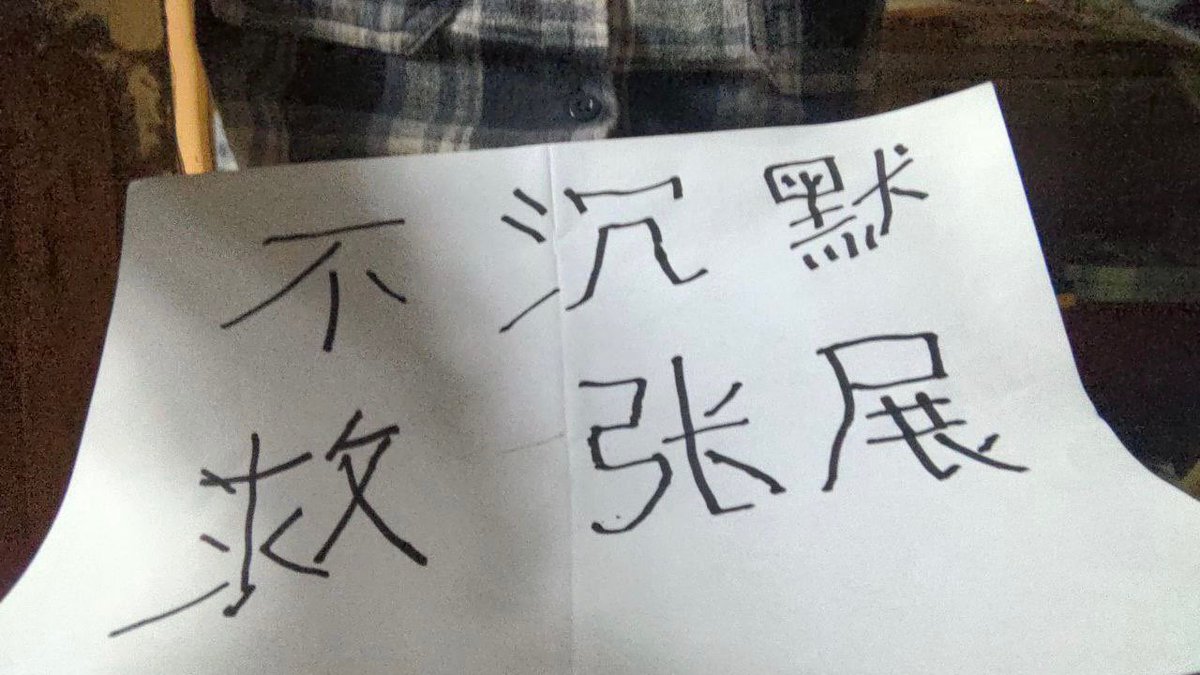 不沉默
救张展